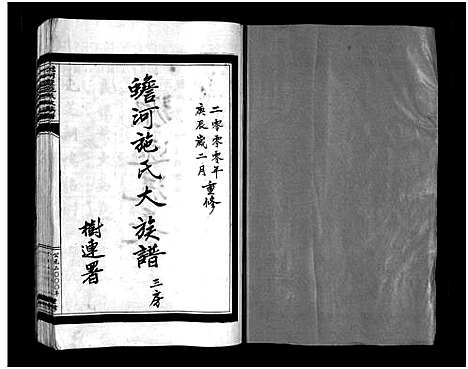 二零零零年
庚辰歲二月重修
蟾河施氏大族譜
三房
樹連署